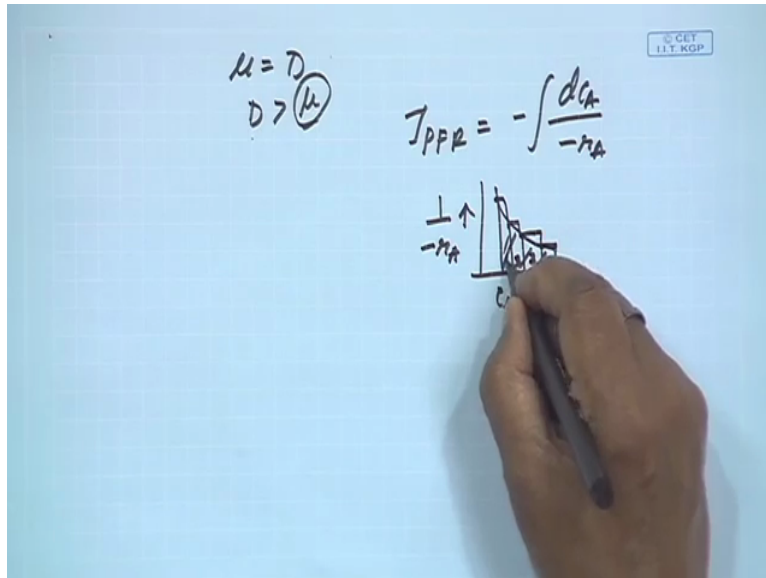 © CET
I.I.T. KGP
μ = D
D > μ
τPFR = - ∫ dCA / -rA
1 / -rA ↑